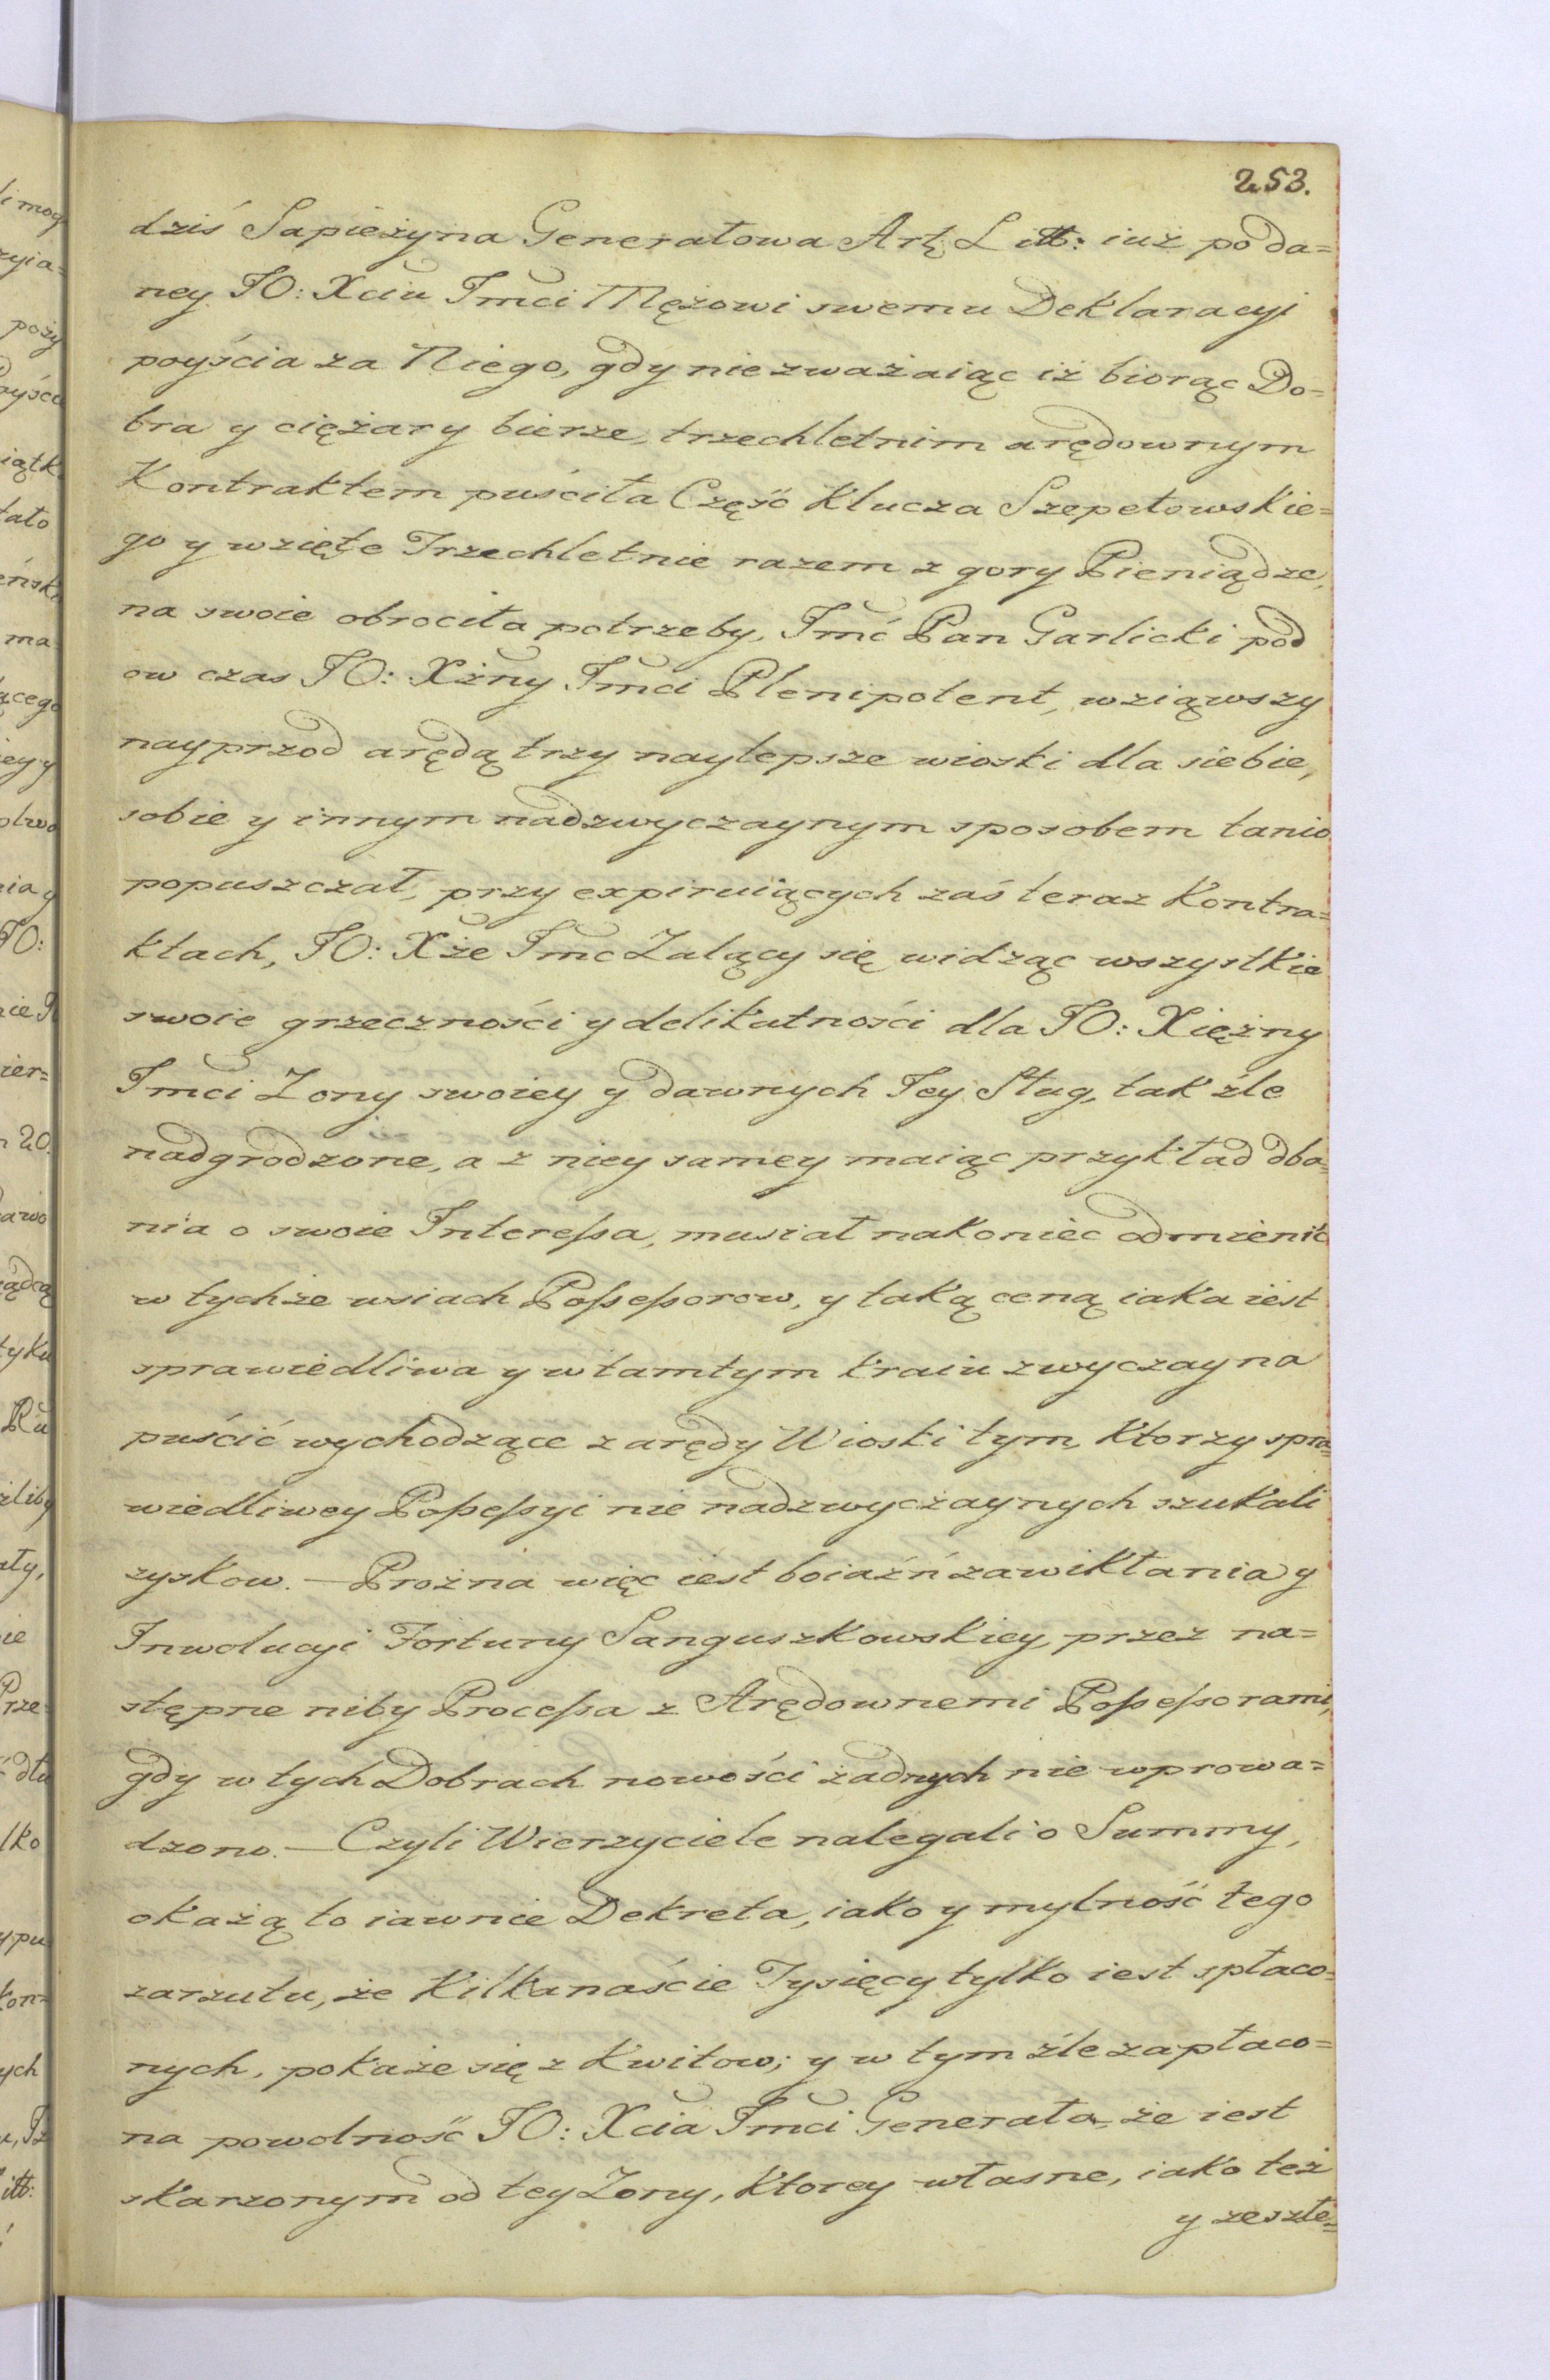 253.
dziś Sapieżyna Generałowa Art. Litt: iuż po da=
ney JO: Xciu Jmci Mężowi swemu Deklaracyi
poyścia za Niego, gdy nie zważaiąc iż biorąc Do=
bra y ciężary bierze, trzechletnim arędownym
Kontraktem puściła Część Klucza Szepetowskie=
go y wzięte Trzechletnie razem z gory Pieniądze,
na swoie obrociła potrzeby, Jmć Pan Garlicki pod
ow czas JO: Xżny Jmci Plenipotent, wziąwszy
nayprzod arędą trzy naylepsze wioski dla siebie,
sobie y innym nadzwyczaynym sposobem tanio
popuszczał, przy expiruiących zaś teraz Kontra=
ktach, JO: Xże Jmc Żalący się widząc wszystkie
swoie grzeczności y delikatności dla JO: Xiężny
Jmci Zony swoiey y dawnych Jey Sług, tak źle
nadgrodzone, a z niey samey maiąc przykład dba=
nia o swoie Interessa, musiał nakoniec odmienić
w tychże wsiach Possessorow, y taką ceną iaka iest
sprawiedliwa y w tamtym kraiu zwyczayna
puścić wychodzące z arędy Wioski tym, ktorzy spra=
wiedliwey Possessyi nie nadzwyczaynych szukali
zyskow. — Prożna więc iest boiaźń zawikłania y
Inwolucyi Fortuny Sanguszkowskiey, przez na=
stępne niby Processa z Arędownemi Possessorami,
gdy w tych Dobrach nowości żadnych nie wprowa=
dzono. — Czyli Wierzyciele nalegali o Summy,
okażą to iawnie Dekreta, iako y mylność tego
zarzutu, że Kilkanaście Tysięcy tylko iest spłaco=
nych, pokaże się z Kwitow; y w tym źle zapłaco=
na powolność JO: Xcia Jmci Generała, że iest
skarzonym od tey Zony, ktorey własne, iako też
y zeszłe=